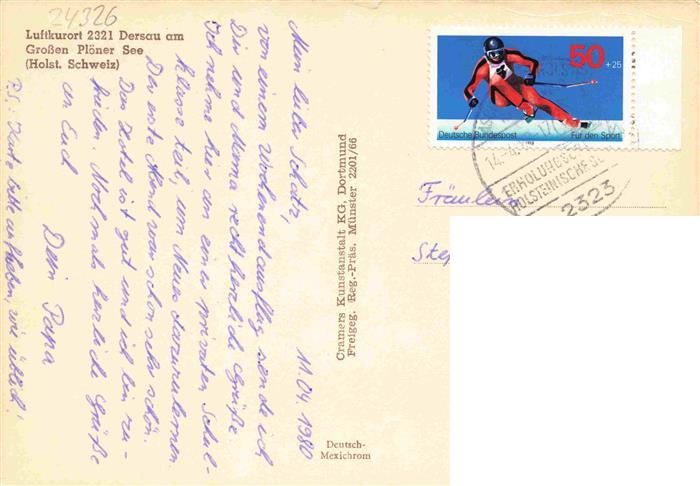 24326
Luftkurort 2321 Dersau am
Großen Plöner See
(Holst. Schweiz)
11.04.1980
Mein lieber Schatz,
von einem Wochenendausflug sende ich
Dir und Mama recht herzliche Grüße.
Ich nehme hier an einer privaten Schul-
klasse teil, um Neues dazuzulernen.
Der erste Abend war schon sehr schön.
Das Hotel ist gut und ich bin zu-
frieden. Nochmals herzliche Grüße
an Euch
Dein Papa
P.S. Karte bitte aufheben, wie üblich!
Cramers Kunstanstalt KG, Dortmund
Freigeg. Reg.-Präs. Münster 2201/66
Deutsch-
Mexichrom
50 +25
Deutsche Bundespost
Für den Sport
1978
14.-4.
ERHOLUNGSG
HOLSTEINISCHE S
2323
Fräulein
Step